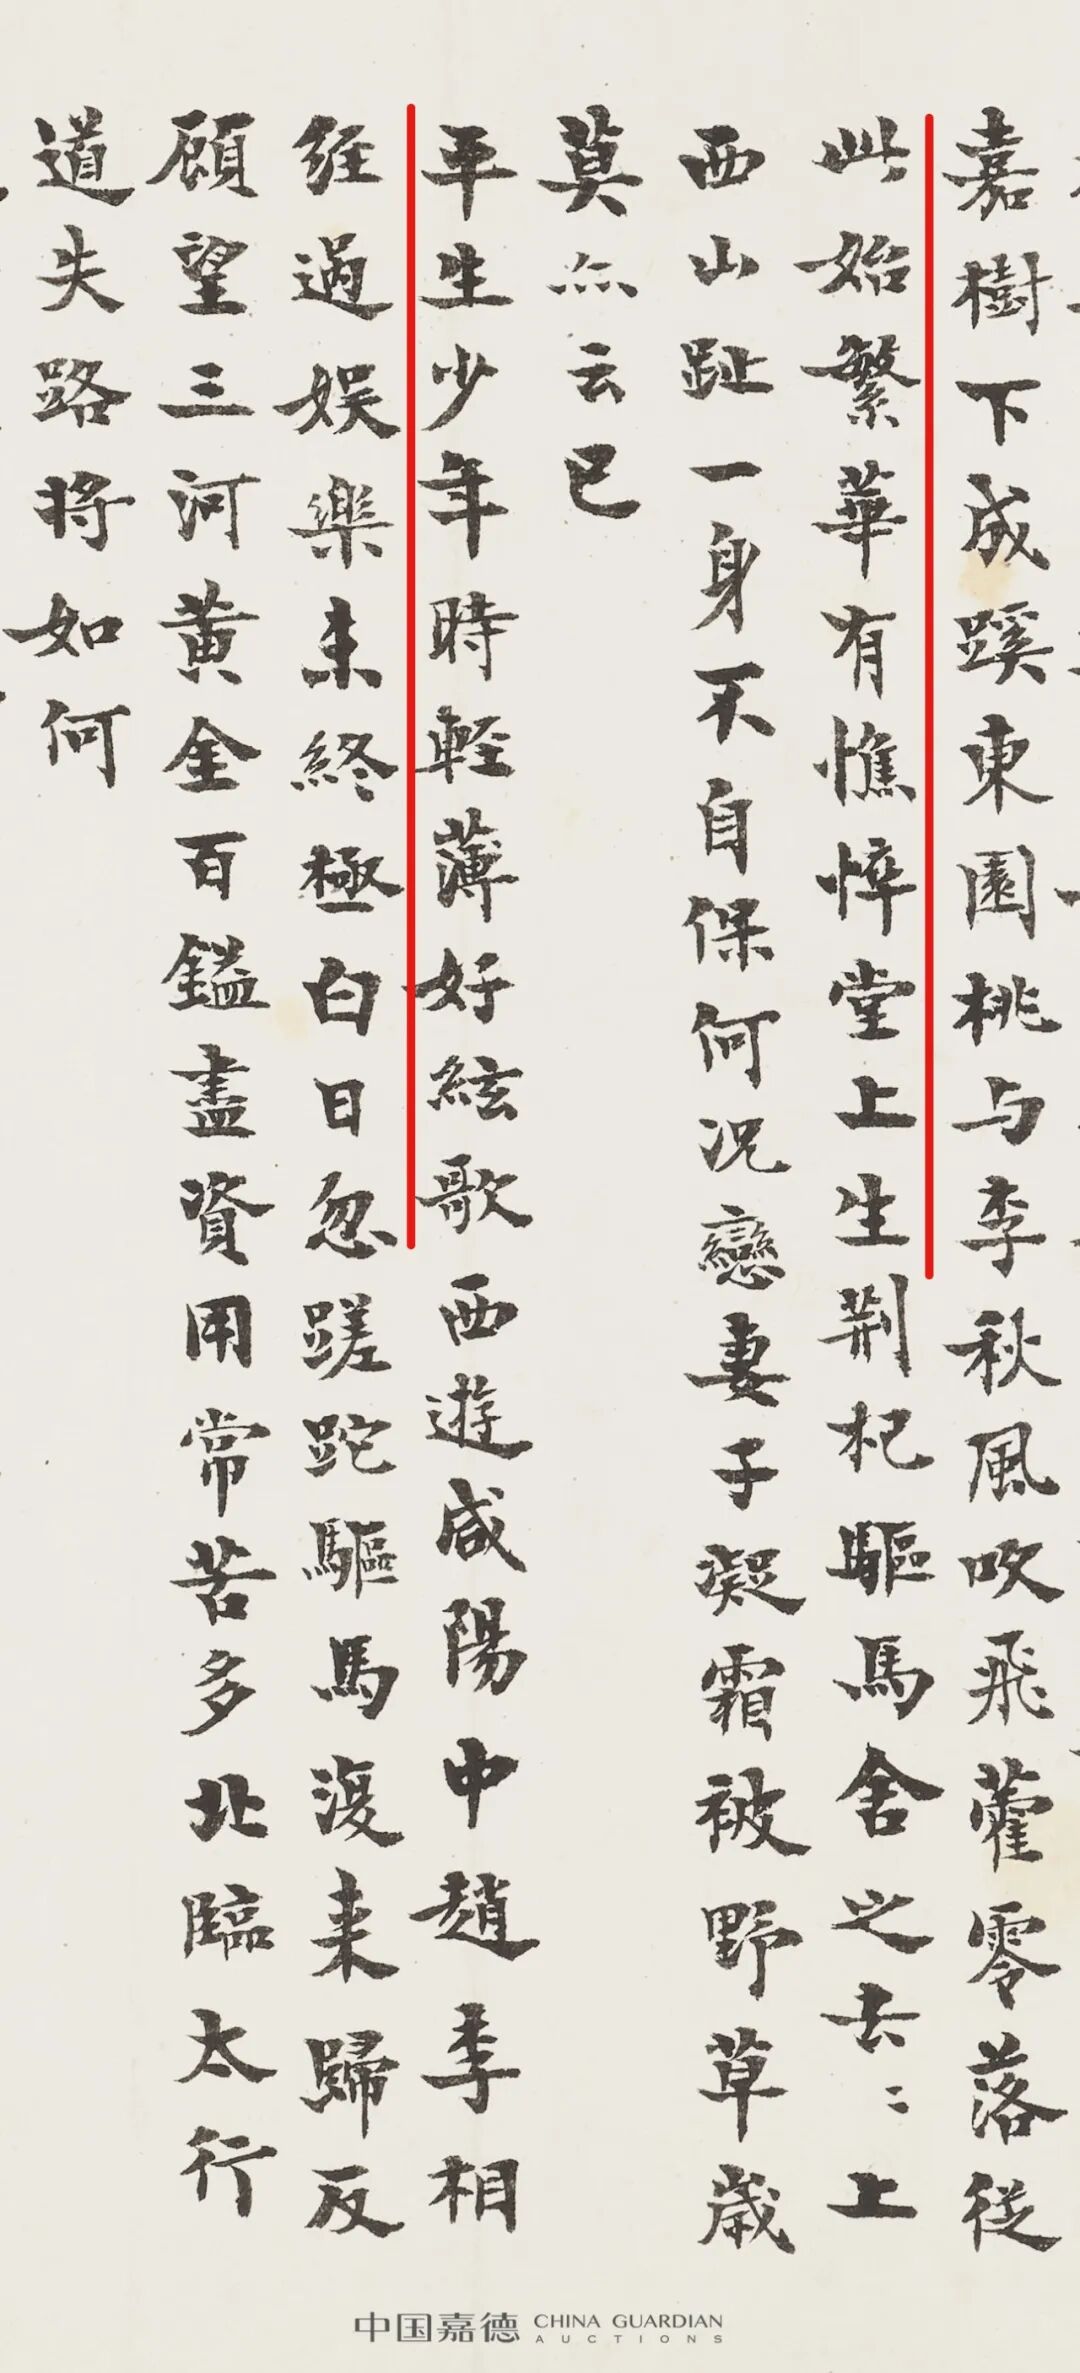 嘉樹下成蹊東園桃与李秋風吹飛藿零落從
此始繁華有憔悴堂上生荆杞驅馬舍之去〻上
西山趾一身不自保何況戀妻子凝霜被野草歲
莫亦云已
平生少年時輕薄好絃歌西遊咸陽中趙李相
經過娛樂未終極白日忽蹉跎驅馬復来歸反
顧望三河黄金百鎰盡資用常苦多北臨太行
道失路将如何
中国嘉德 CHINA GUARDIAN AUCTIONS